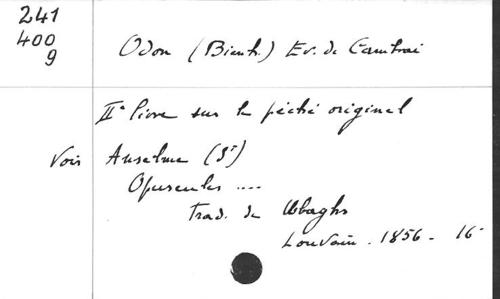 241
400
9
Odon (Bienh.) Ev. de Cambrai
IIe livre sur le péché originel
Voir Anselme (St)
Opuscules ....
Trad. de Ubaghs
Louvain. 1856 - 16°